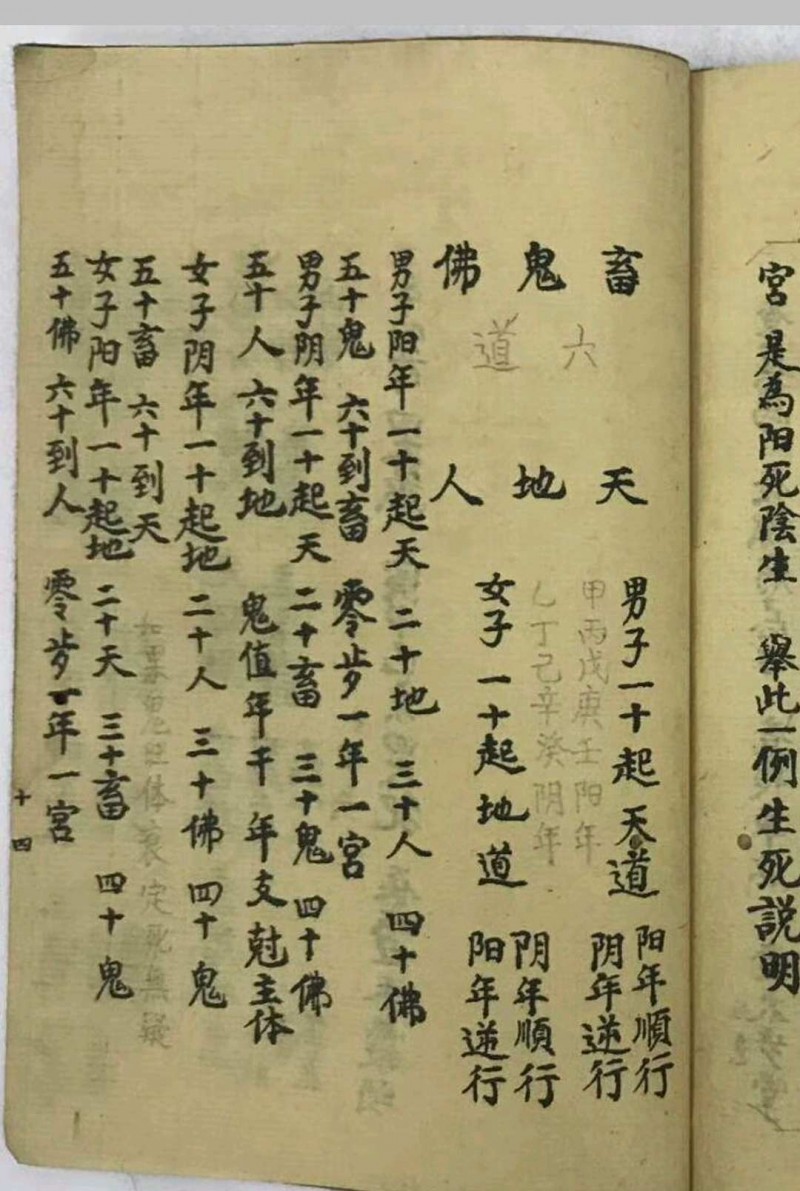 宮 是為阳死陰生 舉此一例生死説明
畜 鬼 佛
六道
天 地 人
男子一十起天道 阳年順行 阴年逆行
甲丙戊庚壬阳年
乙丁己辛癸阴年
女子一十起地道 阴年順行 阳年逆行
男子阳年一十起天 二十地 三十人 四十佛
五十鬼 六十到畜 零岁一年一宮
男子阴年一十起天 二十畜 三十鬼 四十佛
五十人 六十到地 鬼值年干 年支尅主体
女子阴年一十起地 二十人 三十佛 四十鬼
五十畜 六十到天
如果鬼旦体衰定死無疑
女子阳年一十起地 二十天 三十畜 四十鬼
五十佛 六十到人 零岁一年一宮
十四